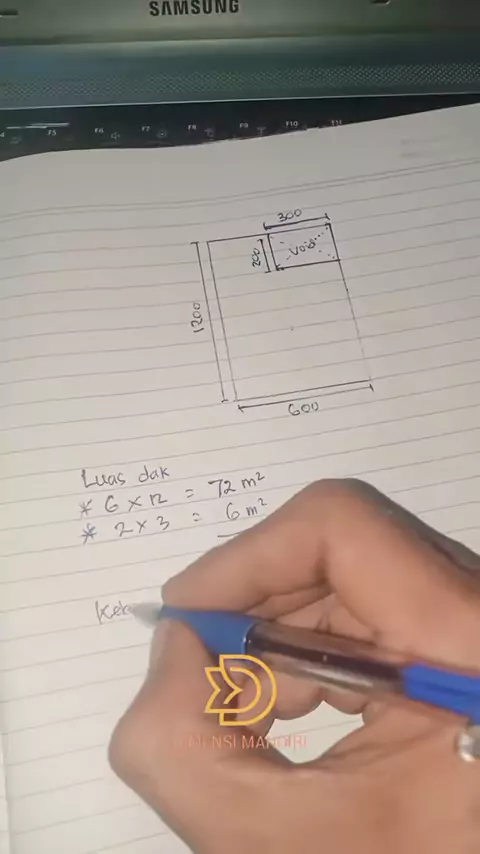 SAMSUNG
F5 F6 F7 F8 F9 F10 F11
300
200
Void
1200
600
Luas dak
* 6 x 12 = 72 m²
* 2 x 3 = 6 m²
MENSI MANDIRI